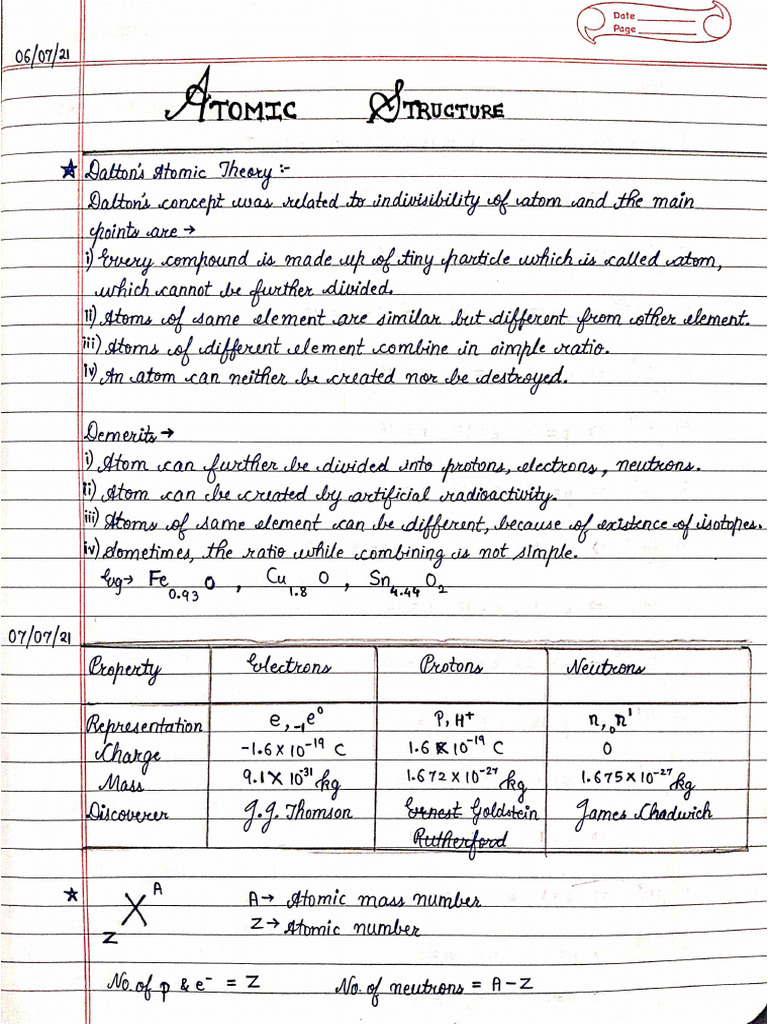 Date
Page
06/07/21
ATOMIC STRUCTURE
★ Dalton's Atomic Theory :-
Dalton's concept was related to indivisibility of atom and the main
points are →
i) Every compound is made up of tiny particle which is called atom,
which cannot be further divided.
ii) Atoms of same element are similar but different from other element.
iii) Atoms of different element combine in simple ratio.
iv) An atom can neither be created nor be destroyed.
Demerits →
i) Atom can further be divided into protons, electrons, neutrons.
ii) Atom can be created by artificial radioactivity.
iii) Atoms of same element can be different, because of existence of isotopes.
iv) Sometimes, the ratio while combining is not simple.
Eg → Fe₀.₉₃O , Cu₁.₈O , Sn₄.₄₄O₂
07/07/21
Property Electrons Protons Neutrons
Representation e, ₋₁e⁰ P, H⁺ n, ₀n¹
Charge -1.6 × 10⁻¹⁹ C 1.6 × 10⁻¹⁹ C 0
Mass 9.1 × 10⁻³¹ kg 1.672 × 10⁻²⁷ kg 1.675 × 10⁻²⁷ kg
Discoverer J.J. Thomson Ernest Goldstein James Chadwich
Rutherford
★ X A A → Atomic mass number
Z Z → Atomic number
No. of p & e⁻ = Z No. of neutrons = A - Z